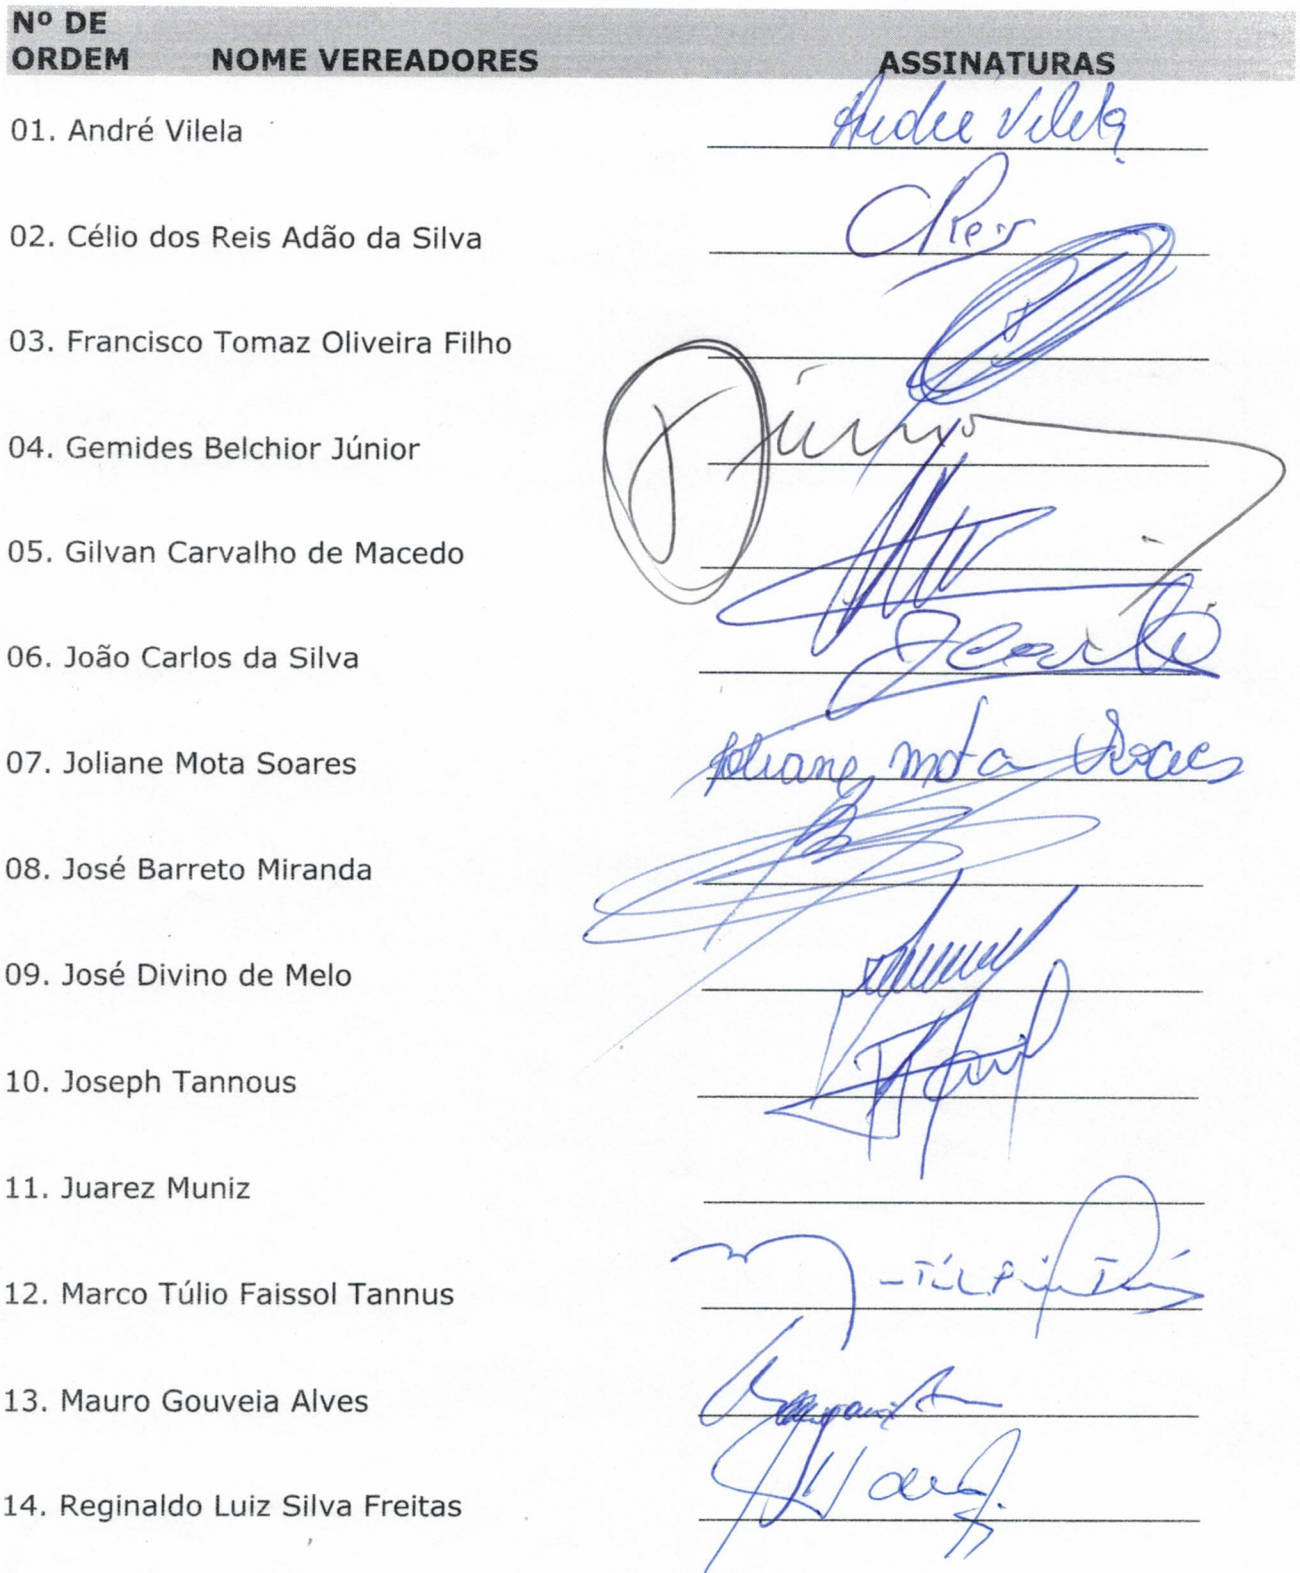 Nº DE
ORDEM NOME VEREADORES ASSINATURAS
01. André Vilela André Vilela
02. Célio dos Reis Adão da Silva CReis
03. Francisco Tomaz Oliveira Filho
04. Gemides Belchior Júnior Júnior
05. Gilvan Carvalho de Macedo
06. João Carlos da Silva
07. Joliane Mota Soares Joliane Mota Soares
08. José Barreto Miranda
09. José Divino de Melo
10. Joseph Tannous
11. Juarez Muniz
12. Marco Túlio Faissol Tannus
13. Mauro Gouveia Alves
14. Reginaldo Luiz Silva Freitas